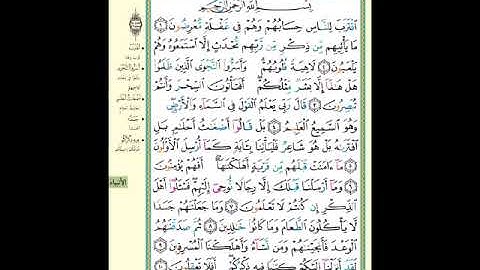 بِسْمِ اللَّهِ الرَّحْمَٰنِ الرَّحِيمِ
اقْتَرَبَ لِلنَّاسِ حِسَابُهُمْ وَهُمْ فِي غَفْلَةٍ مُعْرِضُونَ ١
مَا يَأْتِيهِمْ مِنْ ذِكْرٍ مِنْ رَبِّهِمْ مُحْدَثٍ إِلَّا اسْتَمَعُوهُ وَهُمْ
يَلْعَبُونَ ٢ لَاهِيَةً قُلُوبُهُمْ وَأَسَرُّوا النَّجْوَى الَّذِينَ ظَلَمُوا
هَلْ هَٰذَا إِلَّا بَشَرٌ مِثْلُكُمْ أَفَتَأْتُونَ السِّحْرَ وَأَنْتُمْ
تُبْصِرُونَ ٣ قَالَ رَبِّي يَعْلَمُ الْقَوْلَ فِي السَّمَاءِ وَالْأَرْضِ
وَهُوَ السَّمِيعُ الْعَلِيمُ ٤ بَلْ قَالُوا أَضْغَاثُ أَحْلَامٍ بَلِ
افْتَرَاهُ بَلْ هُوَ شَاعِرٌ فَلْيَأْتِنَا بِآيَةٍ كَمَا أُرْسِلَ الْأَوَّلُونَ
٥ مَا آمَنَتْ قَبْلَهُمْ مِنْ قَرْيَةٍ أَهْلَكْنَاهَا أَفَهُمْ يُؤْمِنُونَ
٦ وَمَا أَرْسَلْنَا قَبْلَكَ إِلَّا رِجَالًا نُوحِي إِلَيْهِمْ فَاسْأَلُوا أَهْلَ
الذِّكْرِ إِنْ كُنْتُمْ لَا تَعْلَمُونَ ٧ وَمَا جَعَلْنَاهُمْ جَسَدًا
لَا يَأْكُلُونَ الطَّعَامَ وَمَا كَانُوا خَالِدِينَ ٨ ثُمَّ صَدَقْنَاهُمُ
الْوَعْدَ فَأَنْجَيْنَاهُمْ وَمَنْ نَشَاءُ وَأَهْلَكْنَا الْمُسْرِفِينَ ٩
لَقَدْ أَنْزَلْنَا إِلَيْكُمْ كِتَابًا فِيهِ ذِكْرُكُمْ أَفَلَا تَعْقِلُونَ ١٠
الأنبياء